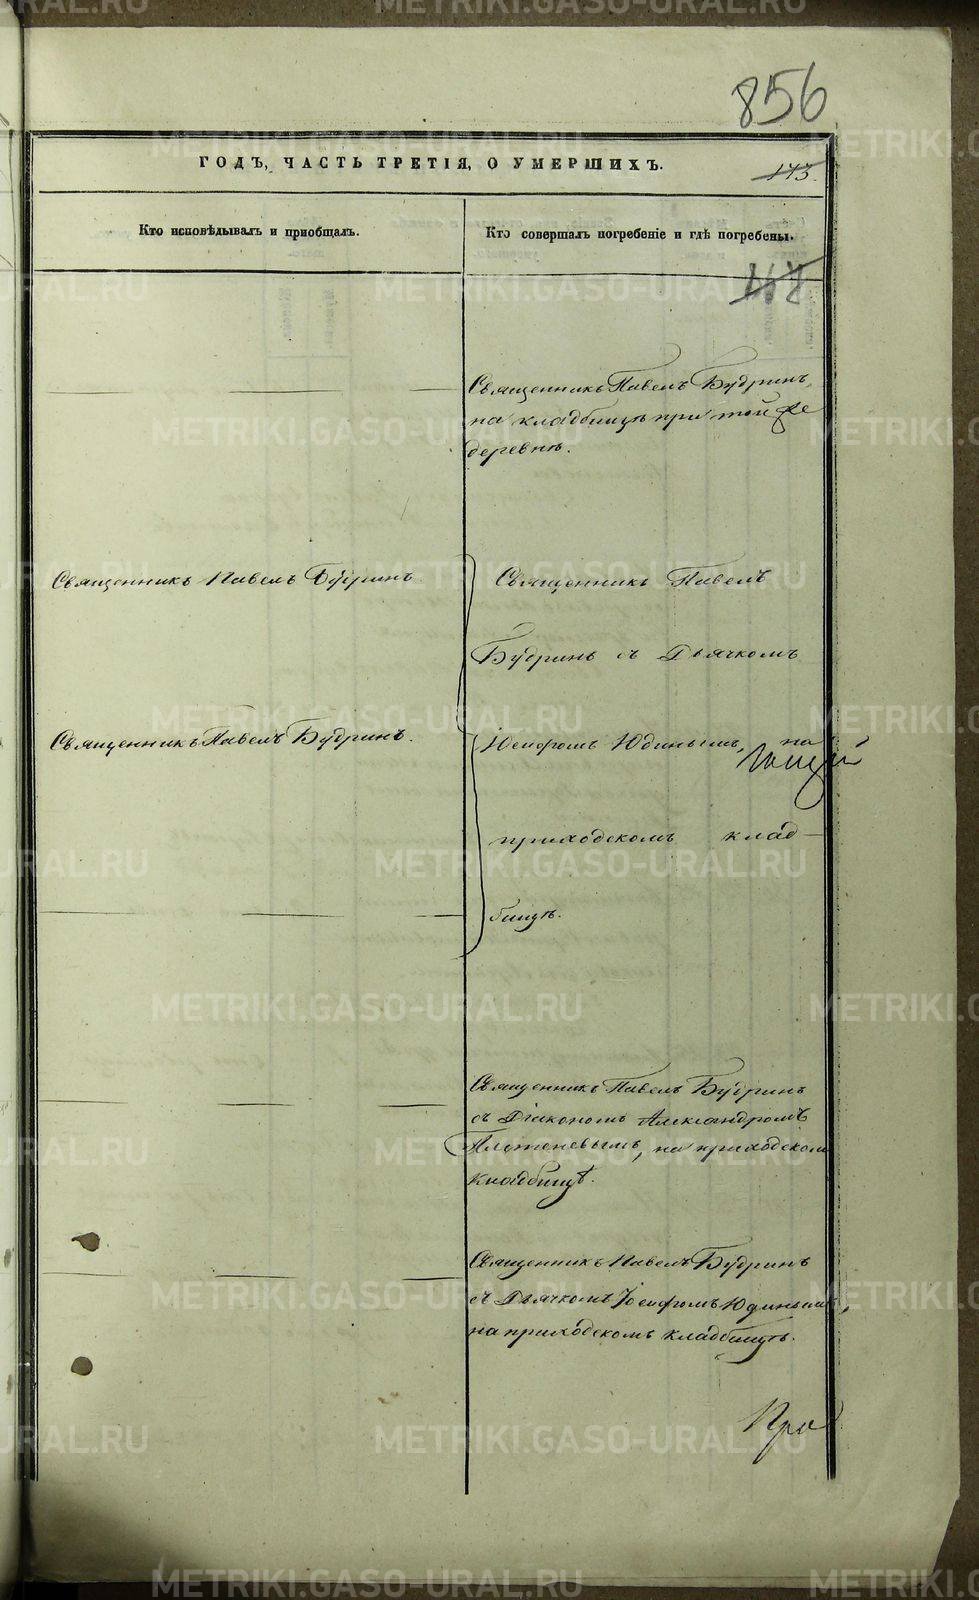 856
ГОДЪ, ЧАСТЬ ТРЕТІЯ, О УМЕРШИХЪ.
173.
Кто исповѣдывалъ и пріобщалъ.
Кто совершалъ погребеніе и гдѣ погребены.
Священникъ Павелъ Будринъ,
на кладбищѣ при той же
деревнѣ.
Священникъ Павелъ Будринъ
Священникъ Павелъ
Будринъ съ Дьячкомъ
Священникъ Павелъ Будринъ.
Іосифомъ Юдинымъ, на
приходскомъ клад-
бищѣ.
Священникъ Павелъ Будринъ
съ Діакономъ Александромъ
Плотеневымъ, на приходском
кладбищѣ.
Священникъ Павелъ Будринъ
съ Дьячкомъ Іосифомъ Юдинымъ,
на приходскомъ кладбищѣ.
METRIKI.GASO-URAL.RU